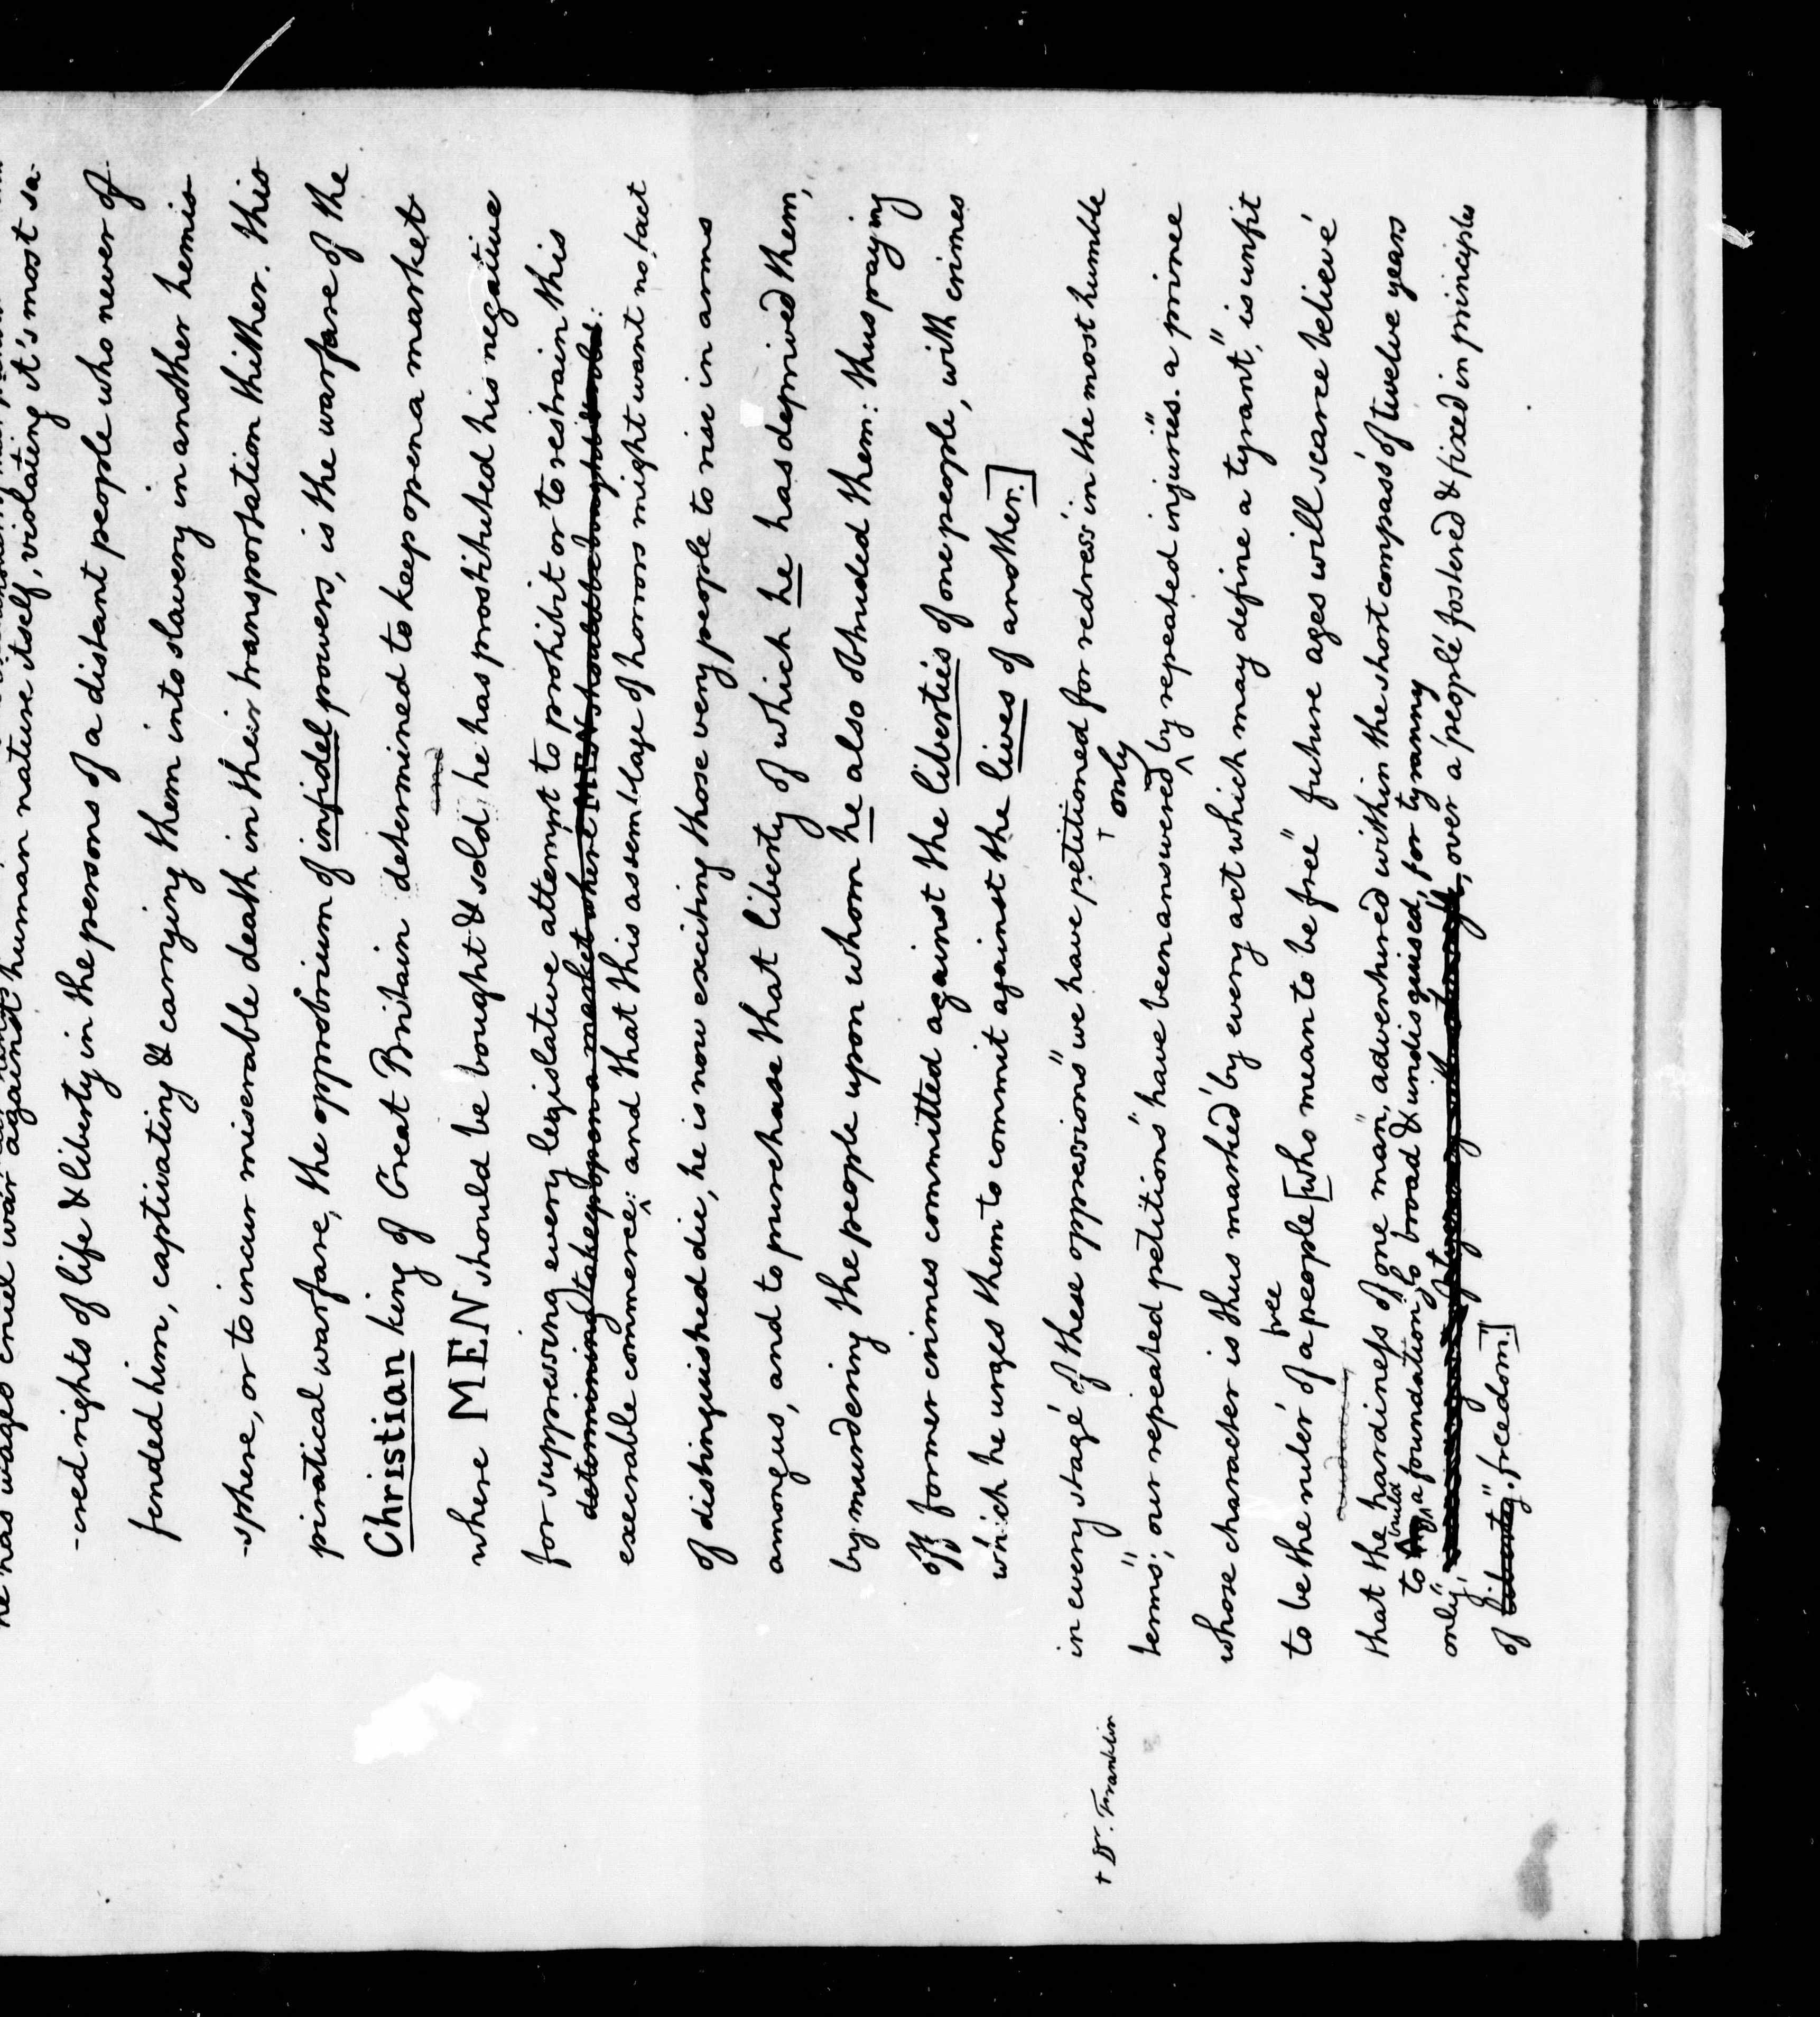 he has waged cruel war against human nature itself, violating it's most sa-
-cred rights of life & liberty in the persons of a distant people who never of
fended him, captivating & carrying them into slavery in another hemis
-sphere, or to incur miserable death in their transportation thither. this
piratical warfare, the opprobrium of infidel powers, is the warfare of the
Christian king of Great Britain determined to keep open a market
where MEN should be bought & sold he has prostituted his negative
for suppressing every legislative attempt to prohibit or to restrain this
determining to keep open a market where MEN should be bought & sold:
execrable commerce: and that this assemblage of horrors might want no fact
of distinguished die, he is now exciting those very people to rise in arms
among us, and to purchase that liberty of which he has deprived them,
by murdering the people upon whom he also obtruded them: thus paying
off former crimes committed against the liberties of one people, with crimes
which he urges them to commit against the lives of another.]
in every stage of these oppressions we have petitioned for redress in the most humble
† only
† Dr. Franklin
terms; our repeated petitions have been answered by repeated injuries. a prince
whose character is thus marked by every act which may define a tyrant, is unfit
free
to be the ruler of a people [who mean to be free future ages will scarce believe
that the hardiness of one man, adventured within the short compass of twelve years
build
to a foundation so broad & undisguised, for tyranny
only, over a people fostered & fixed in principles
of liberty freedom.]